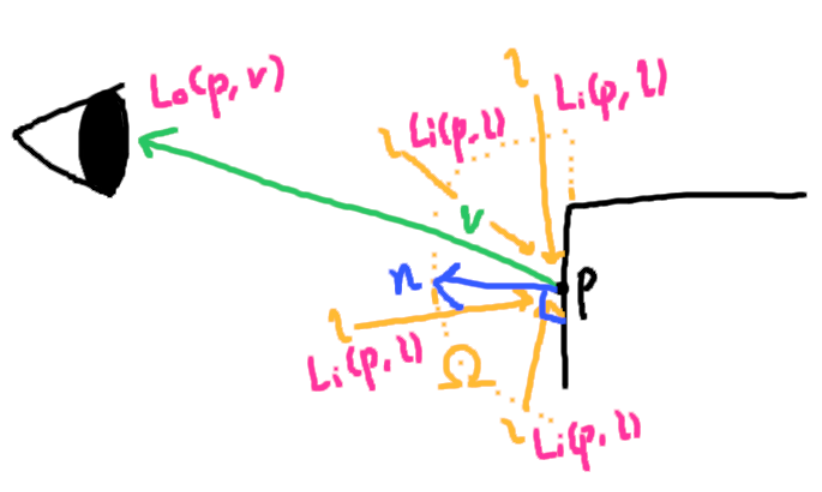 l
Lo(p, v)
Li(p, l)
l
Li(p, l)
v
n
p
l
Li(p, l)
Ω
l
Li(p, l)